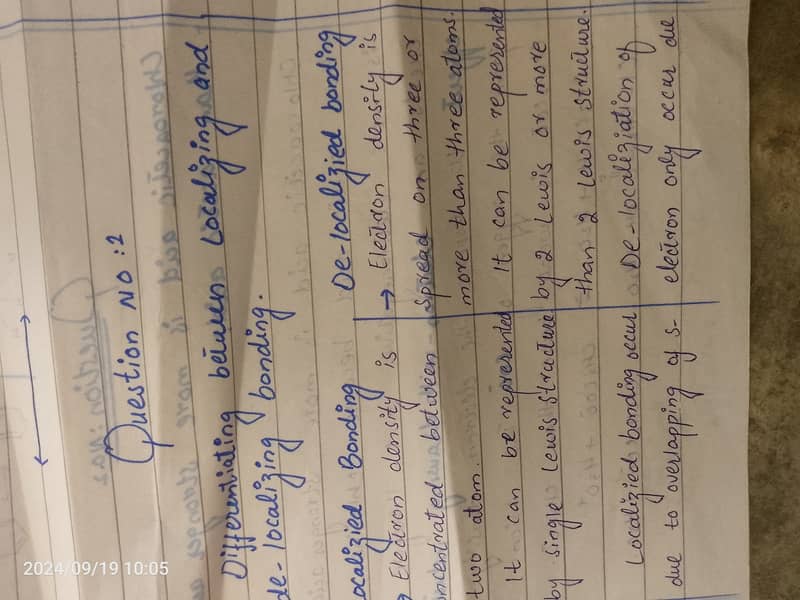 Question NO : 2
Differentiating between Localizing and
de-localizing bonding.
Localizied Bonding
Electron density is
concentrated between
two atom.
It can be represented
by single Lewis structure
Localizied bonding occur
due to overlapping of s-
De-localizied bonding
→ Electron density is
spread on three or
more than three atoms.
It can be represented
by 2 Lewis or more
than 2 Lewis structure.
De-localiziation of
electron only occur due
2024/09/19 10:05